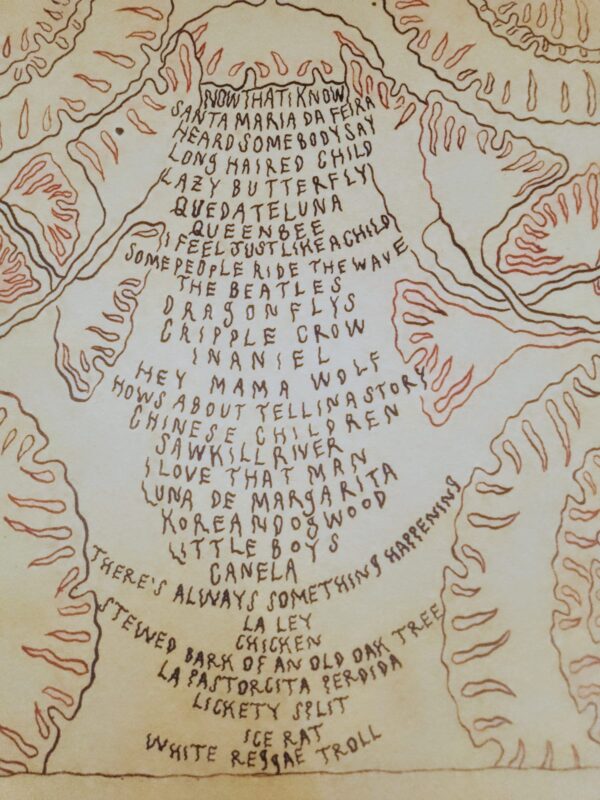 NOW THAT I KNOW
SANTA MARIA DA FEIRA
HEARD SOMEBODY SAY
LONG HAIRED CHILD
LAZY BUTTERFLY
QUEDATELUNA
QUEEN BEE
I FEEL JUST LIKE A CHILD
SOME PEOPLE RIDE THE WAVE
THE BEATLES
DRAGONFLYS
CRIPPLE CROW
INANIEL
HEY MAMA WOLF
HOWS ABOUT TELLIN A STORY
CHINESE CHILDREN
SAWKILL RIVER
I LOVE THAT MAN
LUNA DE MARGARITA
KOREAN DOGWOOD
LITTLE BOYS
CANELA
THERE'S ALWAYS SOMETHING HAPPENING
LA LEY
CHICKEN
STEWED BARK OF AN OLD OAK TREE
LA PASTORCITA PERDIDA
LICKETY SPLIT
ICE RAT
WHITE REGGAE TROLL